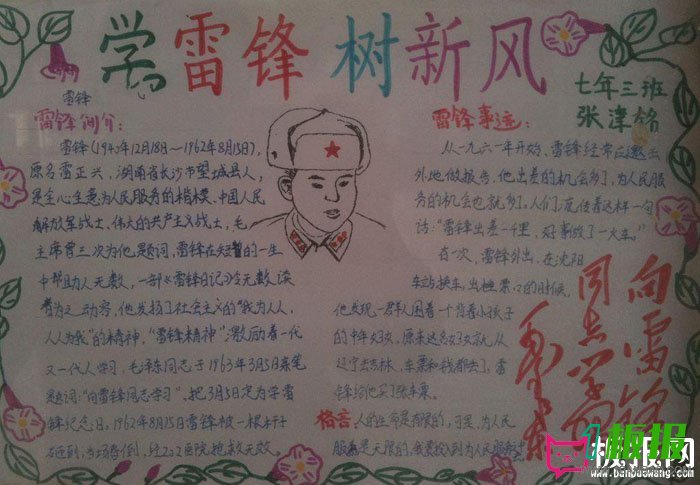 学雷锋 树新风
七年三班
张津铭
雷锋
雷锋简介:
雷锋(1940年12月18日~1962年8月15日),
原名雷正兴,湖南省长沙市望城县人,
是全心全意为人民服务的楷模、中国人民
解放军战士、伟大的共产主义战士,毛
主席曾三次为他题词,雷锋在短暂的一生
中帮助人无数,一部《雷锋日记》令无数读
者为之动容,他发扬了社会主义的"我为人人,
人人为我"的精神,"雷锋精神"激励着一代
又一代人学习,毛泽东同志于1963年3月5日亲笔
题词:"向雷锋同志学习",把3月5日定为学雷
锋纪念日,1962年8月15日雷锋被一根杆子
砸到,当场昏倒,经202医院抢救无效。
雷锋事迹:
从一九六一年开始,雷锋经常应邀出
外地做报告,他出差的机会多了,为人民服
务的机会也就多了,人们流传着这样一句
话:"雷锋出差一千里,好事做了一火车。"
有一次,雷锋外出,在沈阳
车站换车,出检票口的时候,
他发现一群人围着一个背着小孩子
的中年妇女,原来这名妇女从
辽宁去吉林,车票和钱都丢了,雷
锋给他买了张车票。
格言:人的生命是有限的,可是,为人民
服务是无限的,我要投入到为人民服务
向雷锋
同志学习
毛泽东
板报
板报网
www.banbaowang.com